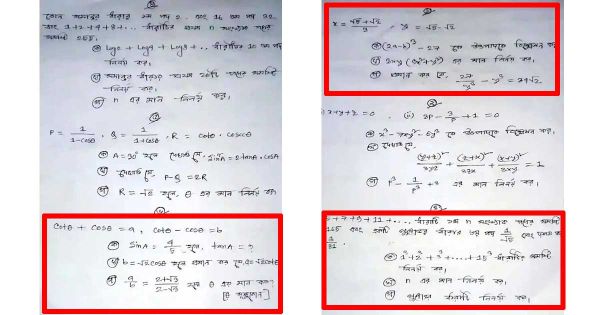 কোন সমান্তর ধারার ১ম পদ 2. এবং 16 তম পদ 32
এবং 1+2+4+8+... ধারাটির প্রথম n সংখ্যক পদের
সমষ্টি 255.
ক) log2 + log4 + log8 + ... ধারাটির 10 তম পদ
নির্ণয় কর।
খ) সমান্তর ধারার প্রথম 20টি পদের সমষ্টি
নির্ণয় কর।
গ) n এর মান নির্ণয় কর।
P = 1/(1-cosθ), Q = 1/(1+cosθ), R = cotθ.cosecθ
ক) A=30° হলে দেখাও যে, sin2A = 2tanA.cosA
খ) দেখাও যে, P-Q = 2R
গ) R = √2 হলে, θ এর মান নির্ণয় কর।
cotθ + cosθ = a, cotθ - cosθ = b
ক) sinA = a/b হলে, tanA = ?
খ) b = √2cosθ হলে প্রমাণ কর যে, a = √2cotθ
গ) a/b = (2+√3)/(2-√3) হলে θ এর মান নির্ণয় কর?
[θ সূক্ষ্মকোণ]
x = (√5+√2)/3, y = √5-√2
ক) (2a-b)³ - 27 কে উৎপাদকে বিশ্লেষণ কর
খ) 2xy(9x²+y²) এর মান নির্ণয় কর।
গ) প্রমাণ কর যে, 27/y³ - y³ = 34√2
x+y+z = 0 (ii) 3P - 3/P + 1 = 0
ক) x² - xy - 6y² কে উৎপাদকে বিশ্লেষণ কর।
খ) দেখাও যে,
(y+z)²/xyz + (z+x)²/zx + (x+y)²/xy = 1
গ) P³ - 1/P³ + 3 এর মান নির্ণয় কর।
5+7+9+11+... ধারাটি ১ম n সংখ্যক পদের সমষ্টি
165 এবং
1/√3
1/81
ক) 1²+2²+3²+...+15² ধারাটির সমষ্টি
নির্ণয় কর।
খ) n এর মান নির্ণয় কর।
গ) গুণোত্তর ধারাটি নির্ণয় কর।